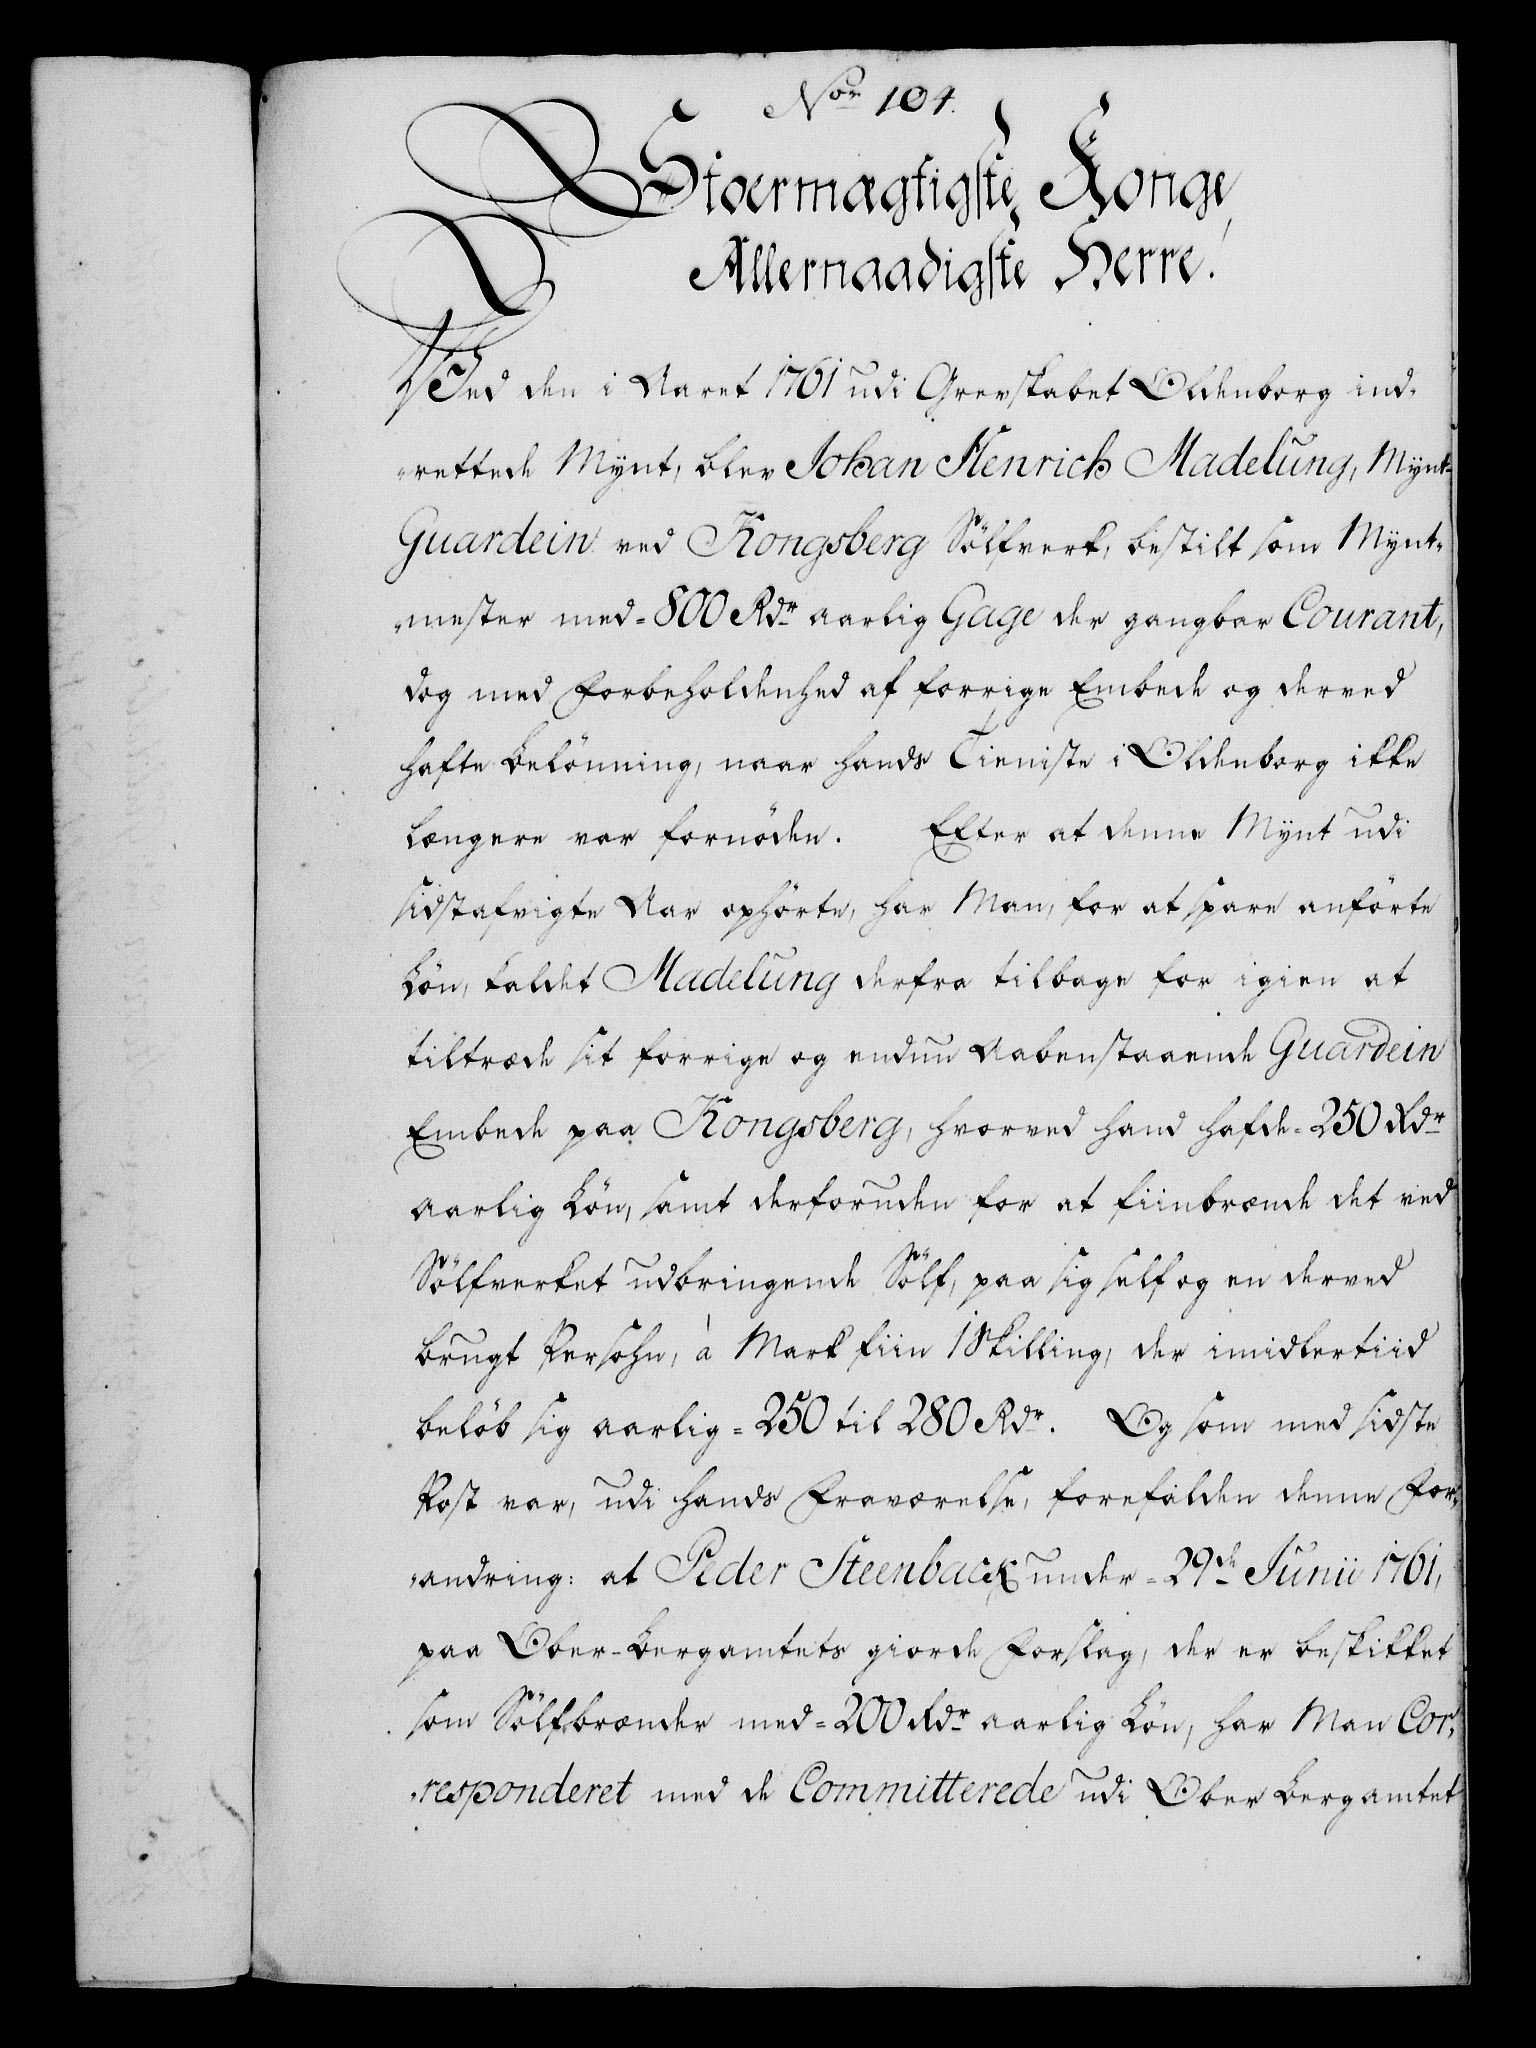 Nor 104.
Stoermægtigste Konge
Allernaadigste Herre!
Ved den i Aaret 1761 udi Grevskabet Oldenborg ind-
rettede Mynt, blev Johan Henrich Madelung, Mynt-
Guardein ved Kongsberg Sölfverk, bestilt som Mynt-
mester med 800 Rdr aarlig Gage der gangbar Courant,
dog med Forbeholdenhed af forrige Embede og derved
hafte Belönning, naar hands Tieniste i Oldenborg ikke
længere var fornöden. Efter at denne Mynt udi
sidstafvigte Aar ophörte, har Man, for at spare anförte
Lön, kaldet Madelung derfra tilbage for igien at
tiltræde sit forrige og endnu aabenstaaende Guardein
Embede paa Kongsberg, hvorved hand hafde 250 Rdr
aarlig Lön, samt derforuden for at fiinbrænde det ved
Sölfverket udbringende Sölf, paa sig self og en derved
brugt Persohn, à Mark fiin 1 Skilling, der imidlertiid
belöb sig aarlig 250 til 280 Rdr. Og som med sidste
Post var, udi hands Fraværelse, forefalden denne For-
andring: at Peder Steenback under 29de Junii 1761,
paa Ober-Bergamtets giorde Forslag, der er beskikket
som Sölfbrænder med 200 Rdr aarlig Lön, har Man Cor-
responderet med de Committerede udi Ober Bergamtet